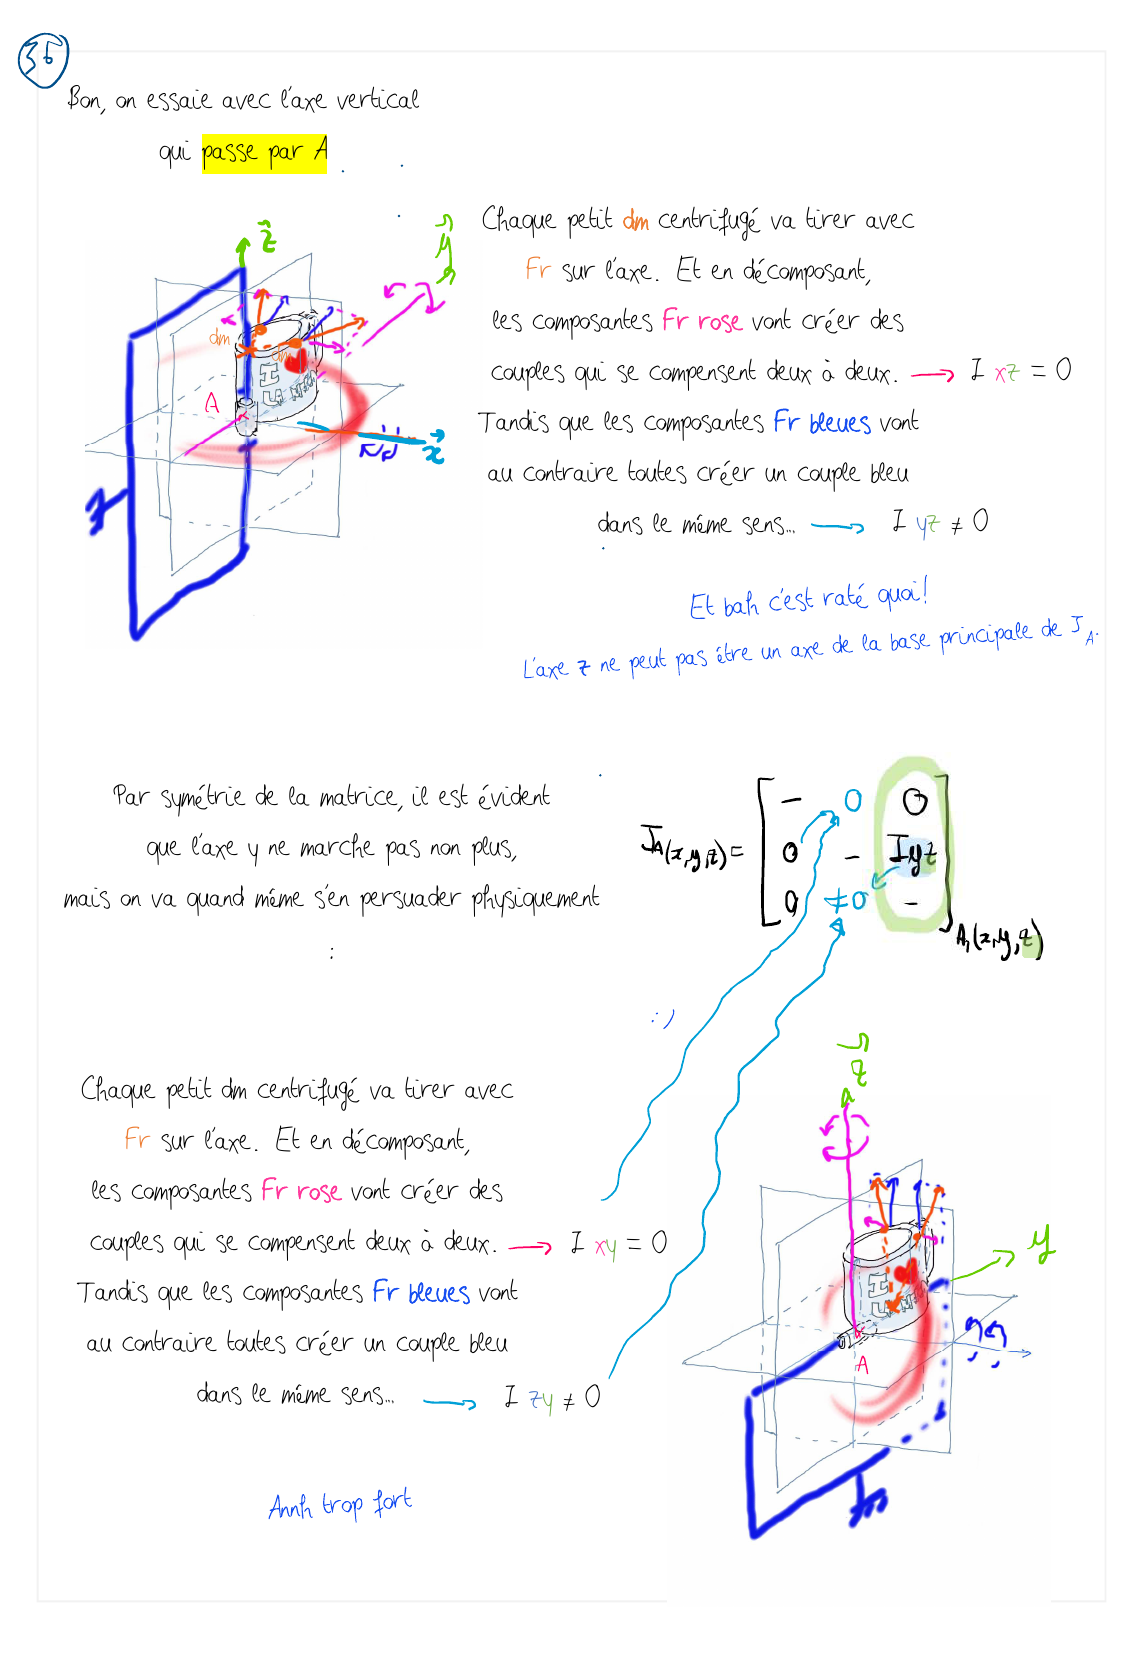 35
Bon, on essaie avec l'axe vertical
qui passe par A
Chaque petit dm centrifugé va tirer avec
Fr sur l'axe. Et en décomposant,
les composantes Fr rose vont créer des
couples qui se compensent deux à deux. → I xz = 0
Tandis que les composantes Fr bleues vont
au contraire toutes créer un couple bleu
dans le même sens... → I yz ≠ 0
z
y
dm
dm
I
LA MECA
A
x
Et bah c'est raté quoi!
L'axe z ne peut pas être un axe de la base principale de J A.
Par symétrie de la matrice, il est évident
que l'axe y ne marche pas non plus,
mais on va quand même s'en persuader physiquement
:
JA(x,y,z) =
– 0 0
0 – Iyz
0 ≠0 –
A,(x,y,z)
:)
Chaque petit dm centrifugé va tirer avec
Fr sur l'axe. Et en décomposant,
les composantes Fr rose vont créer des
couples qui se compensent deux à deux. → I xy = 0
Tandis que les composantes Fr bleues vont
au contraire toutes créer un couple bleu
dans le même sens... → I zy ≠ 0
z
y
I
LA MECA
A
Annh trop fort